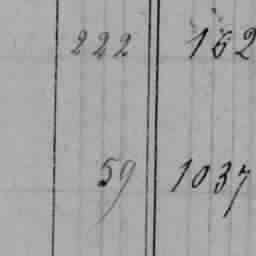 222 162
59 1037